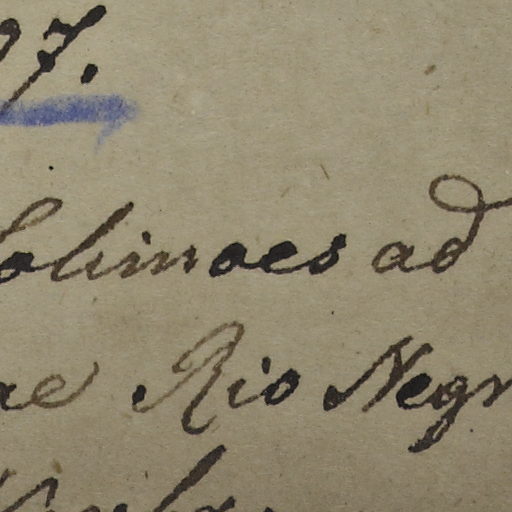 97.
Solimoes ad
ae Rio Negr